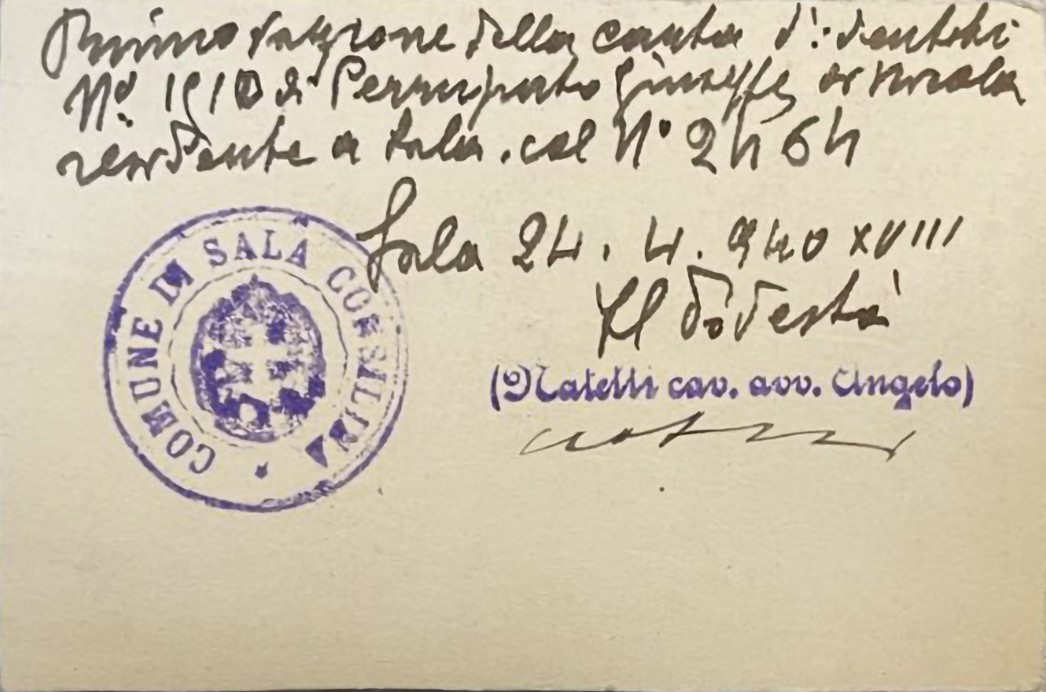 Rinnovazione della carta d'identità
N° 1910 di Giuseppe di Nicola
residente a Sala. col N° 2464
Sala 24. 4. 940 XVIII
Il Podestà
(Natelli cav. avv. Angelo)
COMUNE DI SALA CONSILINA